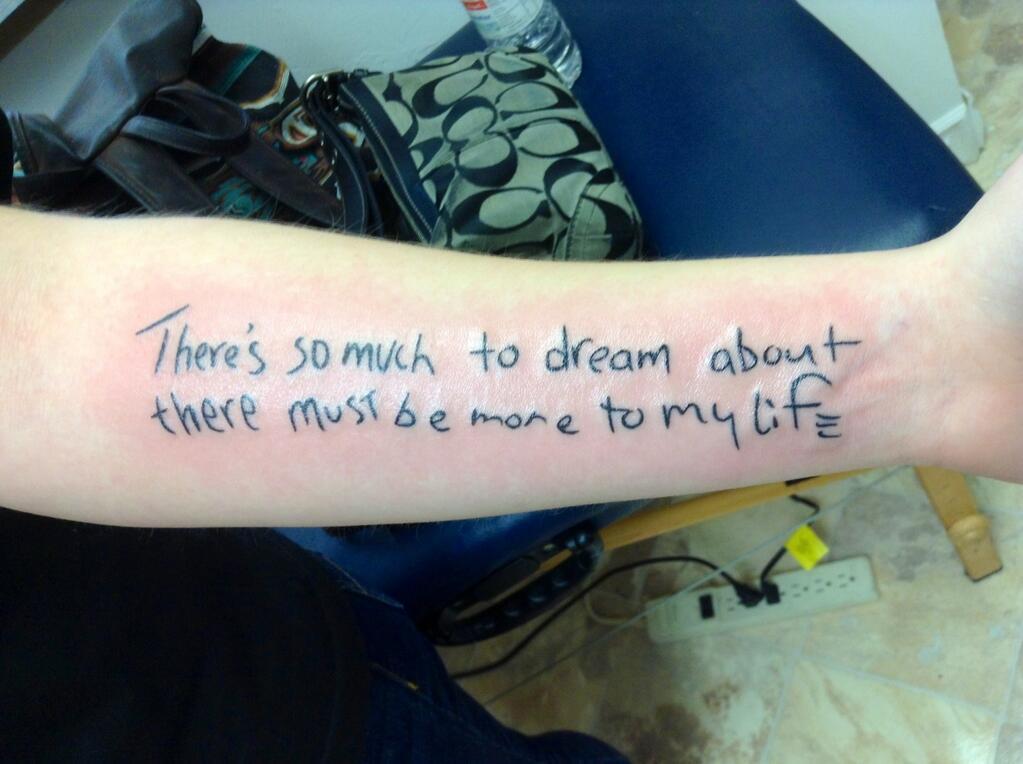 There's so much to dream about
there must be more to my life